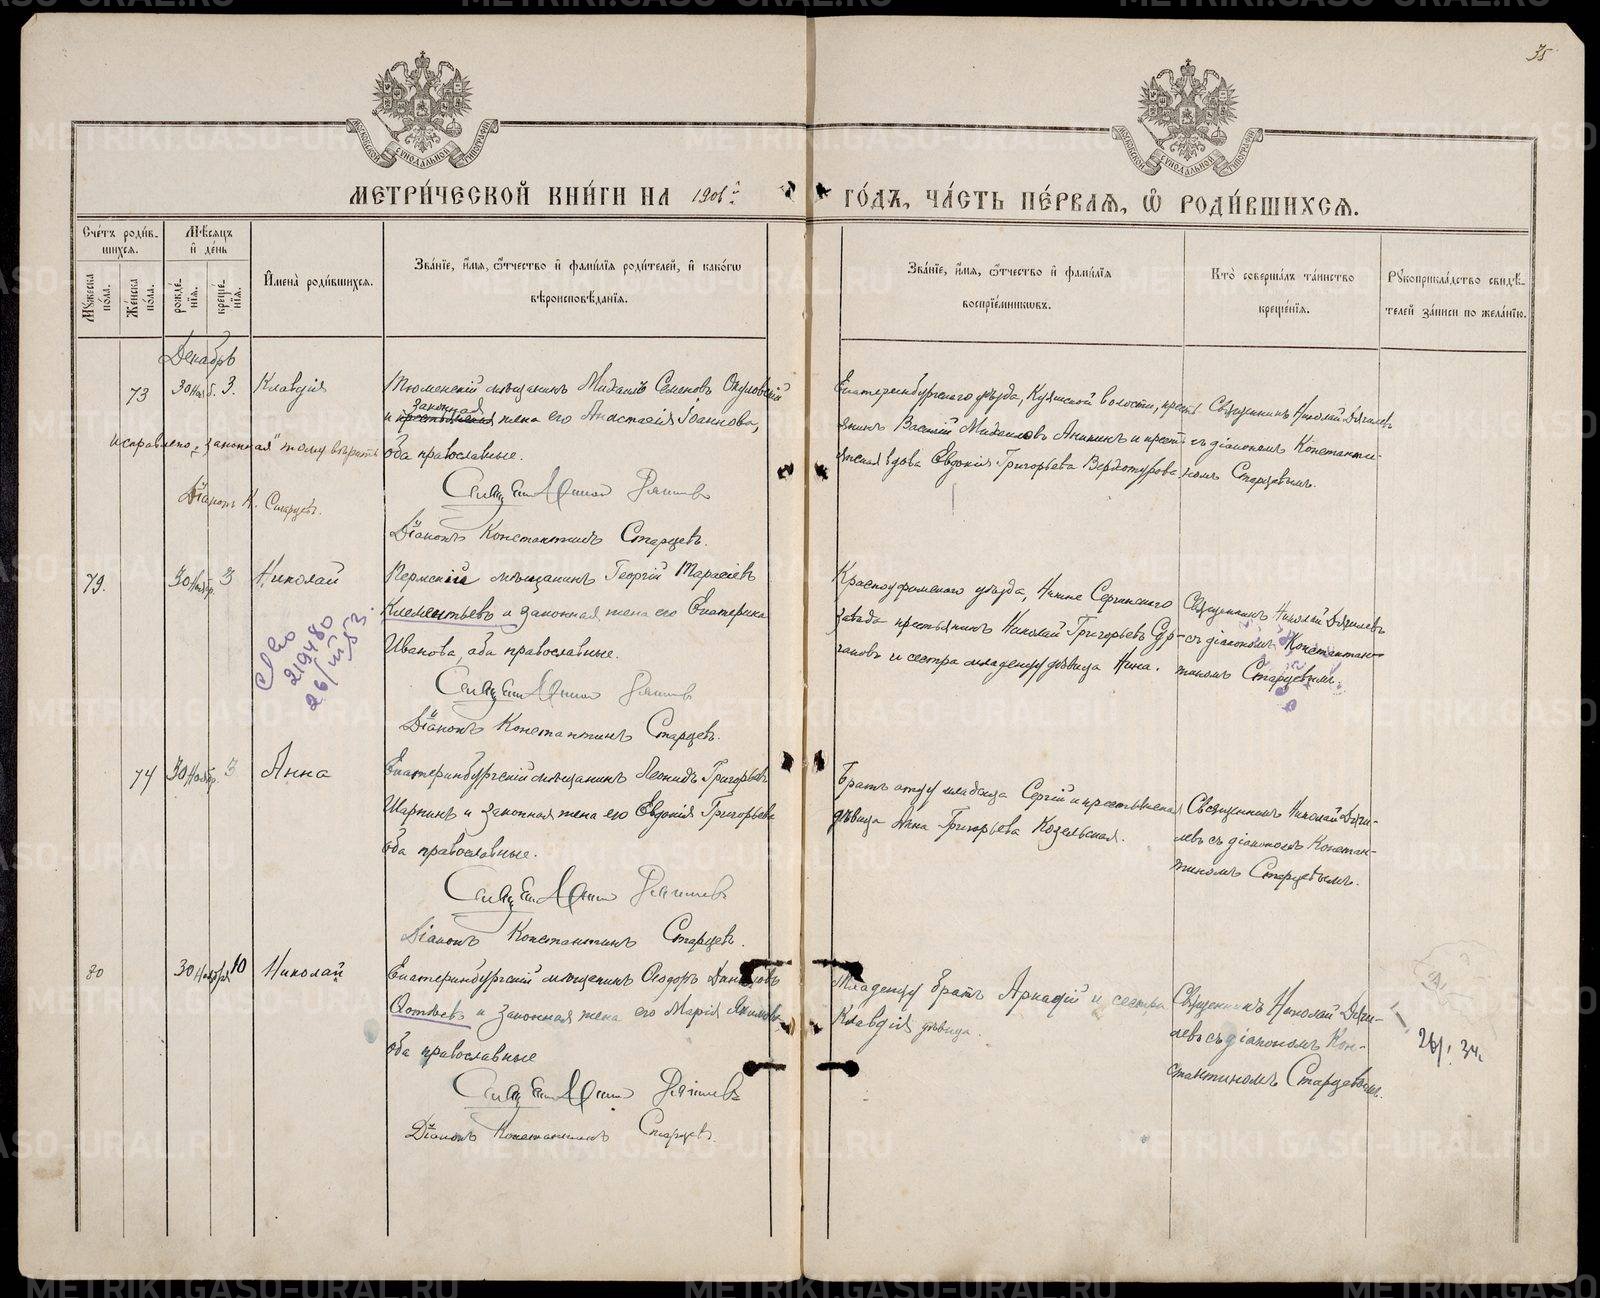 35
МЕТРИЧЕСКОЙ КНИГИ НА 1906й ГОДЪ, ЧАСТЬ ПЕРВАЯ, Ѡ РОДИВШИХСЯ.
Счетъ родив-
шихся.
Мужеска пола.
Женска пола.
Мѣсяцъ
и день
рожде-
нія.
креще-
нія.
Имена родившихся.
Званіе, имя, ѿчество и фамилія родителей, и какогѡ
вѣроисповѣданія.
Званіе, имя, ѿчество и фамилія
воспріемникѡвъ.
Кто совершалъ таинство
крещенія.
Рукоприкладство свидѣ-
телей записи по желанію.
Декабрь
73
30 Нояб. 3.
Клавдія
Тюменскій мѣщанинъ Михаилъ Семеновъ
законная
и жена его Анастасія Іоаннова,
оба православные.
исправлено „законная" тому вѣрить
Діаконъ К. Старцевъ.
Діаконъ Константинъ Старцевъ.
Екатеринбургскаго уѣзда, волости, крестъ-
янинъ Василій Михаиловъ и крестъ-
янская вдова Евдокія Григорьева Верхотурова.
Священникъ Николай Дягилевъ
съ діакономъ Константи-
номъ Старцевымъ.
79.
30 Ноябр. 3
Николай
Пермскій мѣщанинъ Георгій Тарасіевъ
Клементьевъ и законная жена его Екатерина
Иванова, оба православные.
Діаконъ Константинъ Старцевъ.
219480
Красноуфимскаго уѣзда, Нижне Сергинскаго
завода крестьянинъ Николай Григорьевъ Сур-
гановъ и сестра младенцу дѣвица Нина.
Священникъ Николай Дягилевъ
съ діакономъ Константи-
тиномъ Старцевымъ.
74
30 Ноябр. 3
Анна
Екатеринбургскій мѣщанинъ Леонидъ Григорьевъ
и законная жена его Евдокія Григорьева
оба православные.
Діаконъ Константинъ Старцевъ.
Братъ отцу младенца Сергій и крестьянская
дѣвица Анна Григорьева Козельская.
Священникъ Николай Дяги-
левъ съ діакономъ Констан-
тиномъ Старцевымъ.
80
30 Ноября 10
Николай
Екатеринбургскій мѣщанинъ Ѳеодоръ Даниловъ
и законная жена его Марія
оба православные
Діаконъ Константинъ Старцевъ.
Младенцу братъ Аркадій и сестра
Клавдія дѣвица.
Священникъ Николай Дяги-
левъ съ діакономъ Кон-
стантиномъ Старцевымъ.
METRIKI.GASO-URAL.RU